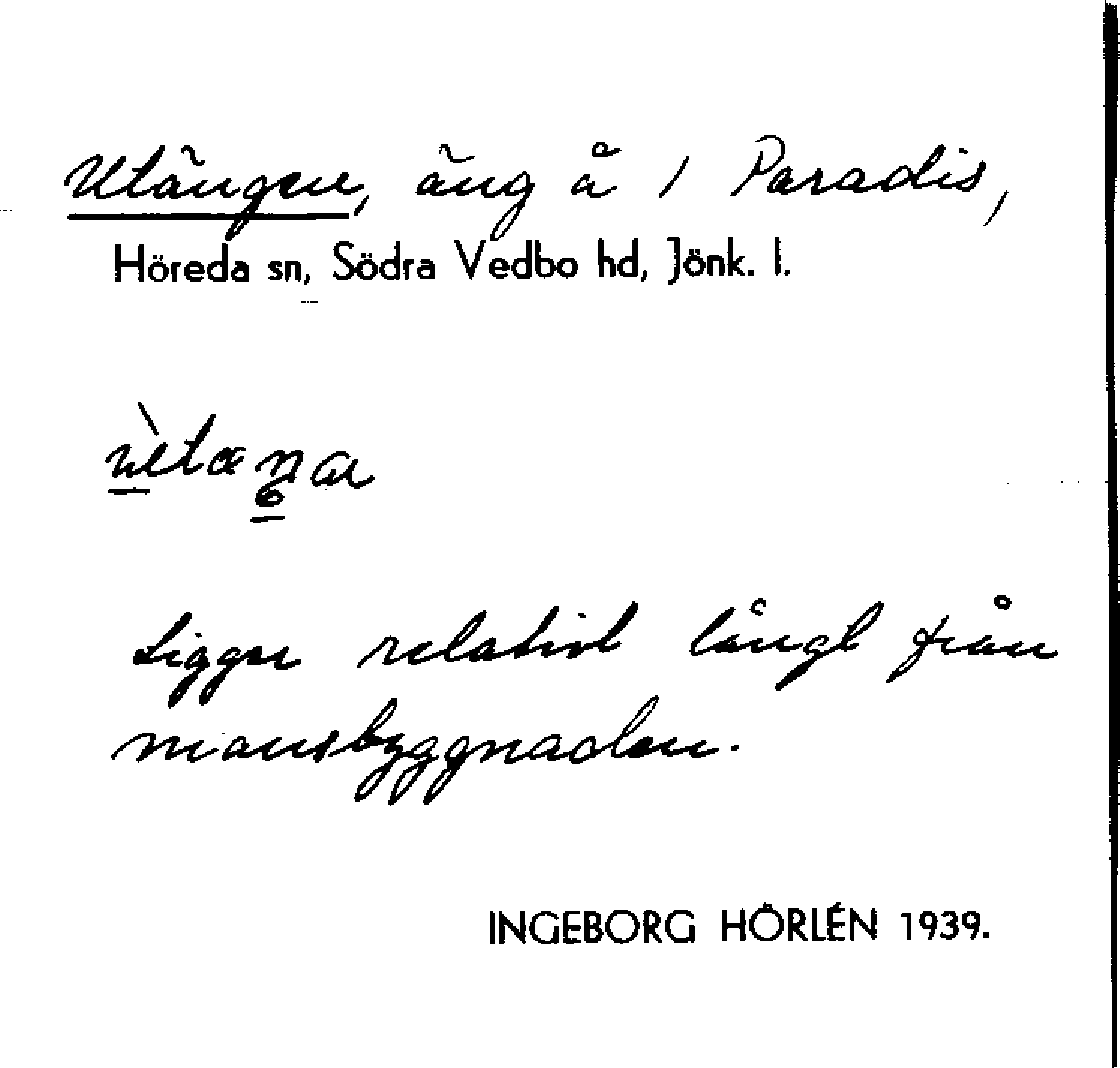 Utängen, äng å 1 Paradis,
Höreda sn, Södra Vedbo hd, Jönk. l.
Ligger relativt långt från
mansbyggnaden.
INGEBORG HÖRLÉN 1939.